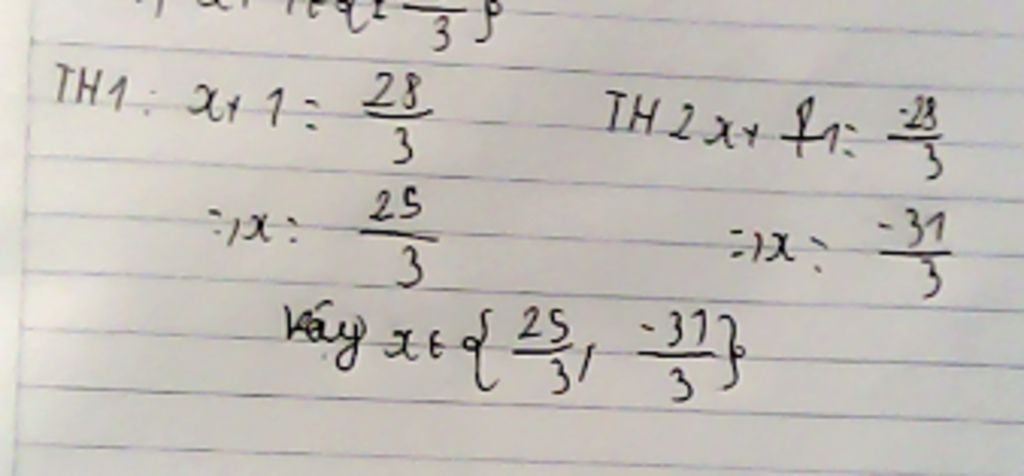 TH1: x+1 = 28/3 TH2 x+1 = -28/3
=> x = 25/3 => x = -31/3
Vậy x ∈ {25/3, -31/3}